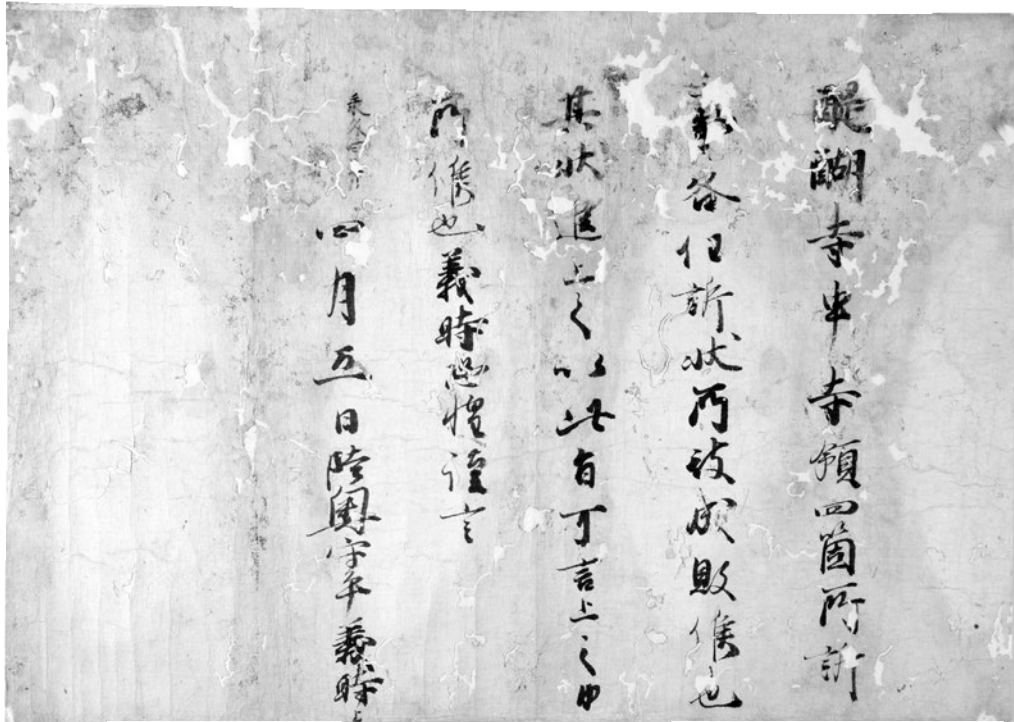 醍醐寺申寺領四箇所訴
各任訴状所被成敗候也
其状進上之以此旨可言上之由
所候也義時恐惶謹言
四月五日陸奥守平義時上